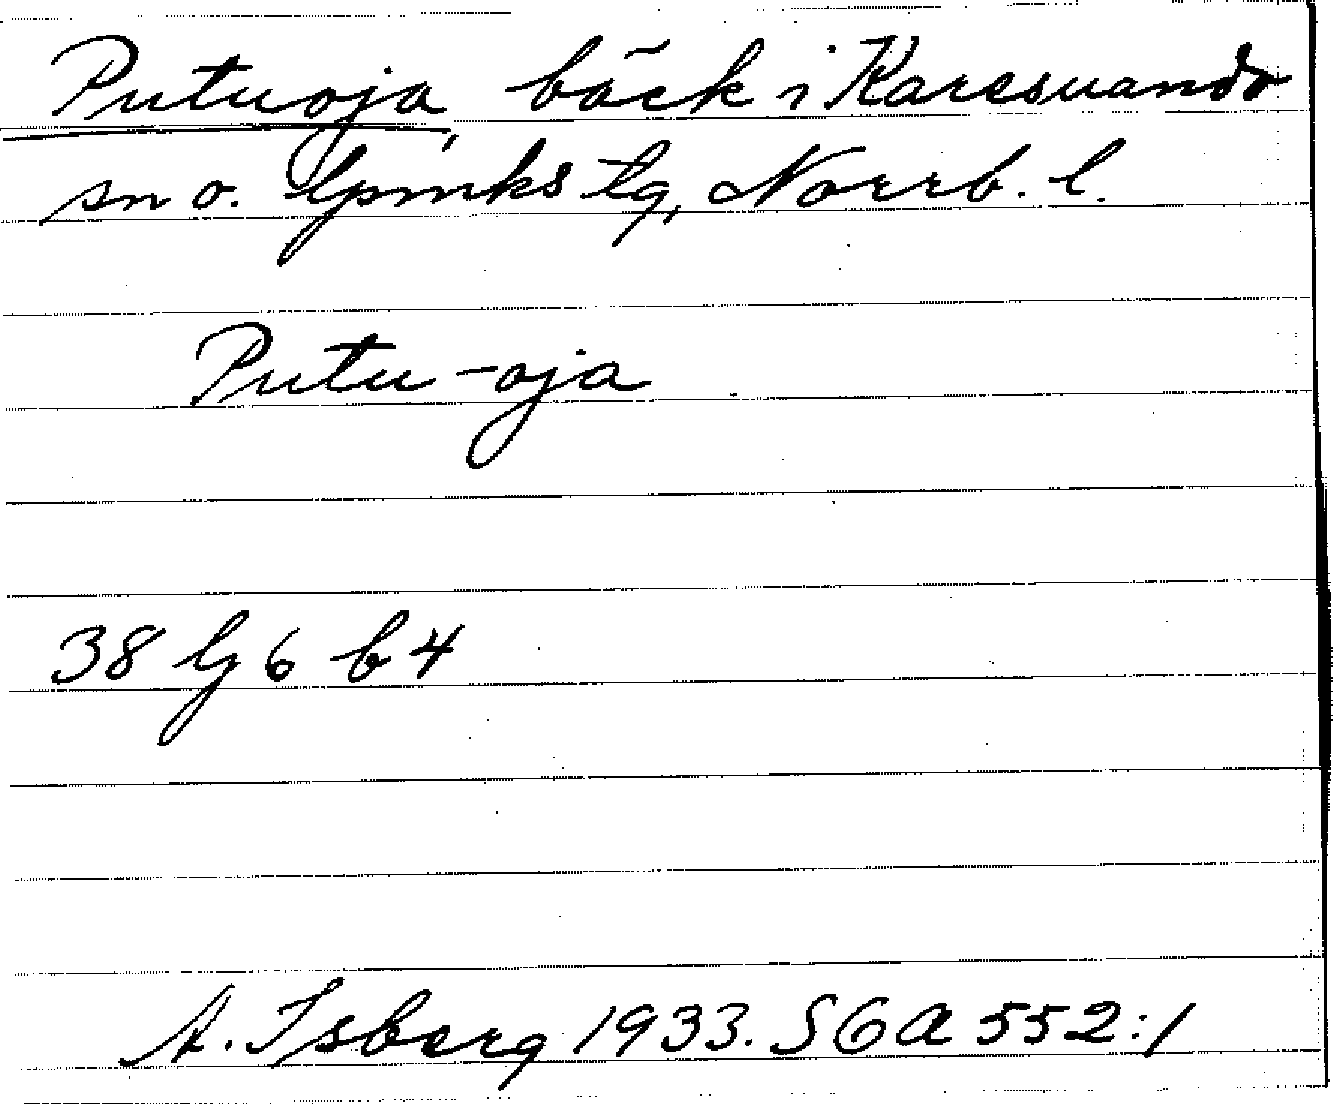 Putuoja, bäck i Karesuando
sn o. lpmks tg, Norrb. l.
Putu-oja
38 G 6 b 4
A. Isberg 1933. SGA 552:1